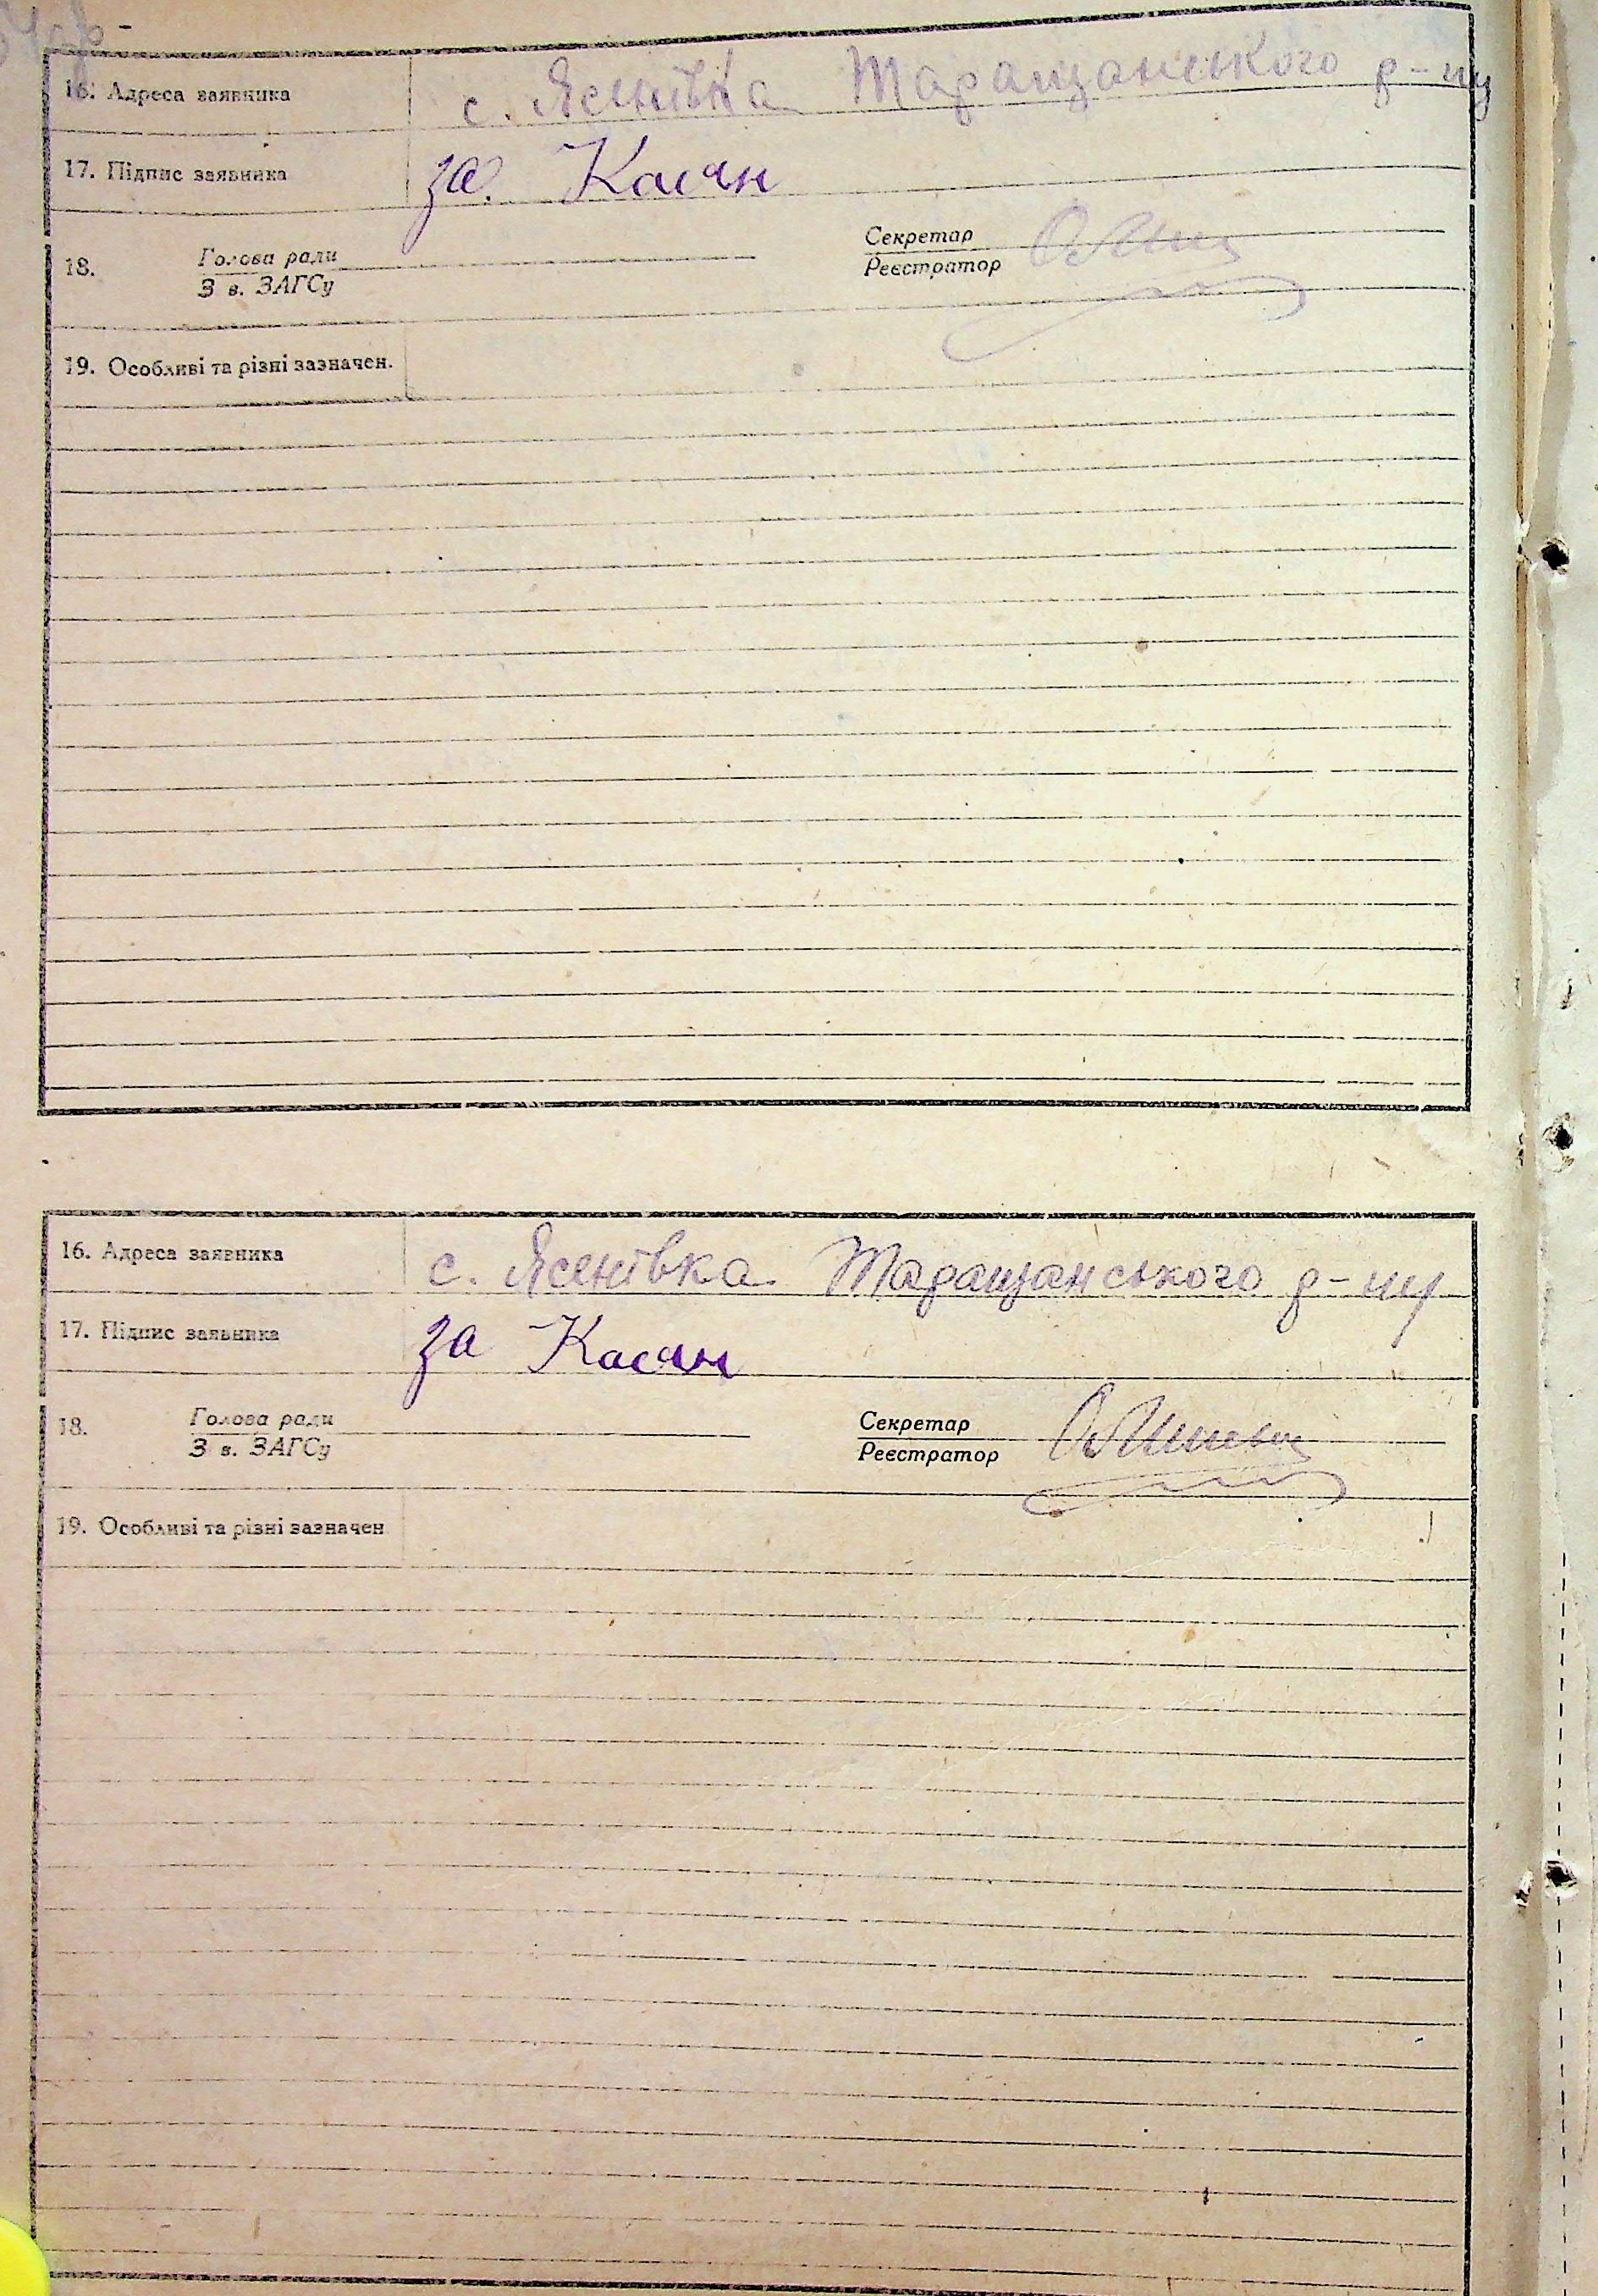 16. Адреса заявника с. Ясенівка Таращанського р-ну
17. Підпис заявника за Касян
18. Голова ради Секретар
З в. ЗАГСу Реєстратор
19. Особливі та різні зазначен.
16. Адреса заявника с. Ясенівка Таращанського р-ну
17. Підпис заявника за Касян
18. Голова ради Секретар
З в. ЗАГСу Реєстратор
19. Особливі та різні зазначен